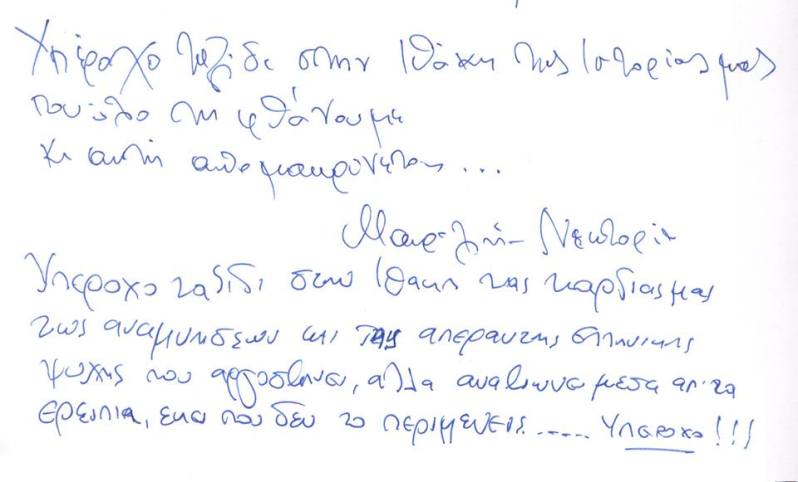 Υπέροχο ταξίδι στην Ιθάκη της Ιστορίας μας
που όλο τη φθάνουμε
κι αυτή απομακρύνεται ...
Υπεροχο ταξιδι στην Ιθακη της καρδιας μας
των αναμνησεων και της απεραντης ελληνικης
ψυχης που αργοσβηνει, αλλα μεσα απ' τα
ερειπια, εκει που δεν το περιμενεις ...... Υπεροχο!!!